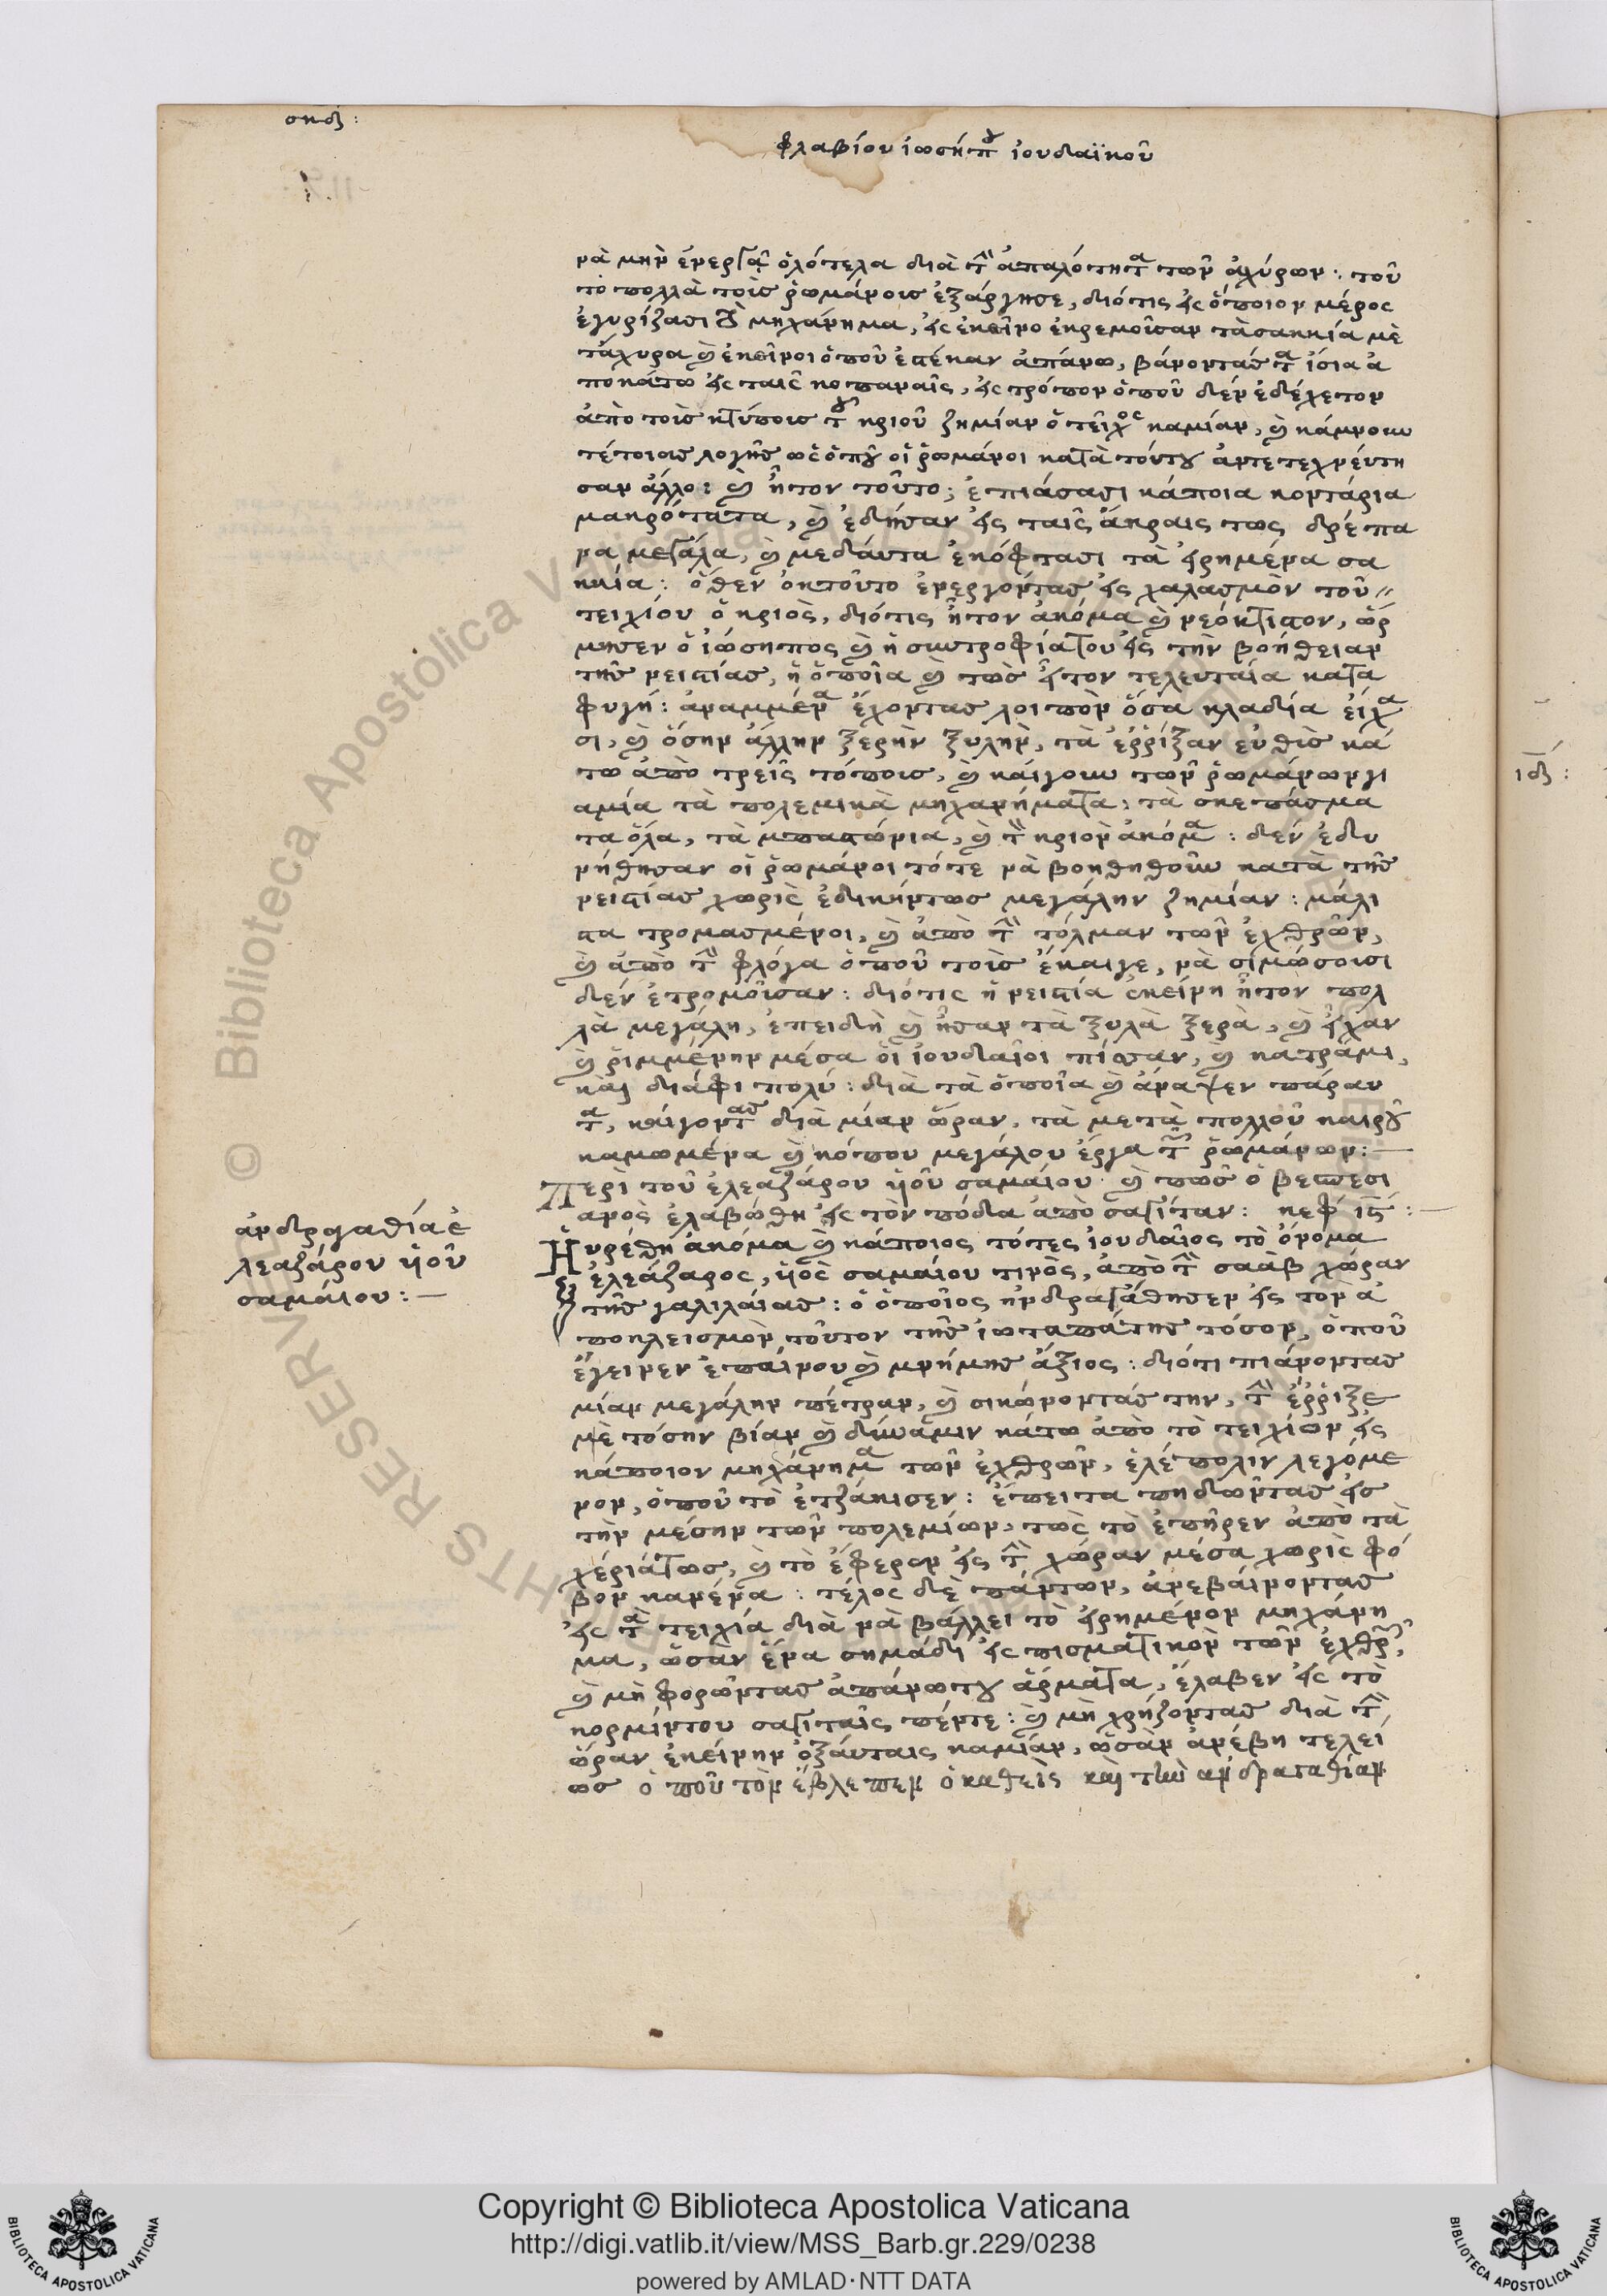 σηδ:
φλαβίου ἰωσήπου ἰουδαϊκοῦ
νὰ μὴν ἐνεργᾶ ὁλότελα διὰ τὴν ἁπαλότητα τῶν ἀχύρων: τοῦ
το πολλὰ τοὶς ῥωμάνοις ἐξάργησε, διότις εἰς ὅποιον μέρος
ἐγυρίζασι τὸ μηχάνημα, εἰς ἐκεῖνο ἐκρεμοῦσαν τὰ σακκία μὲ
τἄχυρα καὶ ἐκεῖνοι ὁποῦ ἐστέκαν ἀπάνω, βάνοντάς τα ἴσια ἀ
ποκάτω εἰς ταὶς κοπαναῖς, εἰς τρόπον ὁποῦ δὲν ἐδέχετον
ἀπὸ τοὶς κτύποις τοῦ κριοῦ ζημίαν ὁ τεῖχος καμίαν, καὶ κάμνουν
τέτοιας λογῆς ὡς ὁποῦ οἱ ῥωμάνοι κατὰ τούτου ἀντετεχνεύτη
σαν ἄλλο: καὶ ἦτον τοῦτο; ἐπιάσασι κάποια κοντάρια
μακρότατα, καὶ ἐδῆσαν εἰς ταὶς ἄκραις τως δρέπα
να μεγάλα, καὶ μεδαύτα ἐκόφτασι τὰ εἰρημένα σα
κκία: ὅθεν ὀκτοῦτο ἐνεργοῦντας εἰς χαλασμὸν τοῦ
τειχίου ὁ κριὸς, διότις ἦτον ἀκόμα καὶ νεόκτιστον, ὥρ
μησεν ὁ ἰώσηπος καὶ ἡ συντροφία του εἰς τὴν βοήθειαν
τῆς νειστίας, ἡ ὁποῖα καὶ τῶς ἦτον τελευταία κατα
φυγή: ἀναμμένα ἔχοντας λοιπὸν ὅσα κλαδία εἴχα
σι, καὶ ὅσην ἄλλην ξερὴν ξυλὴν, τὰ ἐῤῥίξαν εὐθὶς κά
τω ἀπὸ τρεῖς τόποις, καὶ καίγουν τῶν ῥωμάνων γι
αμία τὰ πολεμικὰ μηχανήματα: τὰ σκεπάσμα
τα ὅλα, τὰ μπαστώνια, καὶ τὸν κριὸν ἀκόμα: δὲν ἐδυ
νήθησαν οἱ ῥωμάνοι τότε νὰ βοηθηθοῦν κατὰ τῆς
νειστίας χωρὶς ἐδικήντως μεγάλην ζημίαν: μάλι
στα τρομασμένοι, καὶ ἀπὸ τὴν τόλμαν τῶν ἐχθρῶν,
καὶ ἀπὸ τὴν φλόγα ὁποῦ τοὶς ἔκαιγε, νὰ σιμώσουσι
δὲν ἐτρομοῦσαν: διότις ἡ νειστία ἐκείνη ἦτον πολ
λὰ μεγάλη, ἐπειδὴ καὶ ἦσαν τὰ ξυλὰ ξερὰ, καὶ εἶχαν
καὶ ῥιμμένην μέσα οἱ ἰουδαῖοι πίσσαν, καὶ κατράμι,
καὶ διάφι πολύ: διὰ τὰ ὁποῖα καὶ ἄναψεν πάραυ
τα, καίγοντας διὰ μίαν ὥραν, τὰ μετὰ πολλοῦ καιροῦ
καμωμένα καὶ κόπου μεγάλου ἔργα τῶν ῥωμάνων:—
Περὶ τοῦ ἐλεαζάρου υἱοῦ σαμαίου καὶ πῶς ὁ βεσπεσι
ανὸς ἐλαβώθη εἰς τὸν πόδα ἀπὸ σαγίταν: κεφ ιϛ:—
Ηὑρέθη ἀκόμα καὶ κάποιος τότες ἰουδαῖος τὸ ὄνομα
ἐλεάζαρος, υἱὸς σαμαίου τινὸς, ἀπὸ τὴν σαὰβ χώραν
τῆς γαλιλαίας: ὁ ὁποῖος ἠνδραγάθησεν εἰς τὸν ἀ
ποκλεισμὸν τοῦτον τῆς ἰωταπάτης τόσον, ὁποῦ
ἔγεινεν ἐπαίνου καὶ μνήμης ἄξιος: διότι πιάνοντας
μίαν μεγάλην πέτραν, καὶ σικώνοντάς την, τὴν ἔῤῥιξε
μὲ τόσην βίαν καὶ δύναμιν κάτω ἀπὸ τὸ τειχίων εἰς
κάποιον μηχάνημα τῶν ἐχθρῶν, ἑλέπολιν λεγόμε
νον, ὁποῦ τὸ ἐτζάκισεν: ἔπειτα πηδῶντας εἰς
τὴν μέσην τῶν πολεμίων, τῶς τὸ ἐπῆρεν ἀπὸ τὰ
χέριάτως, καὶ τὸ ἔφεραν εἰς τὴν χώραν μέσα χωρὶς φό
βον κανένα: τέλος δὲ πάντων, ἀνεβαίνοντας
εἰς τὰ τειχία διὰ νὰ βάλλει τὸ εἰρημένον μηχάνη
μα, ὡσὰν ἕνα σημάδι εἰς πισματικὸν τῶν ἐχθρῶν,
καὶ μὴ φορῶντας ἀπάνωτου ἅρματα, ἔλαβεν εἰς τὸ
κορμίντου σαγιταῖς πέντε: καὶ μὴ χρήζοντας διὰ τὴν
ὥραν ἐκείνην ὀξάυταις καμίαν, ὡσὰν ἀνέβη τελεί
ως ὁποῦ τὸν ἔβλεπεν ὁ καθεὶς καὶ τὴν ἀνδραγαθίαν
ἀνδραγαθία ἐ
λεαζάρου υἱοῦ
σαμαίου:—
ιδ:
© Biblioteca Apostolica Vaticana
Copyright © Biblioteca Apostolica Vaticana
http://digi.vatlib.it/view/MSS_Barb.gr.229/0238
powered by AMLAD·NTT DATA
BIBLIOTECA APOSTOLICA VATICANA
BIBLIOTECA APOSTOLICA VATICANA